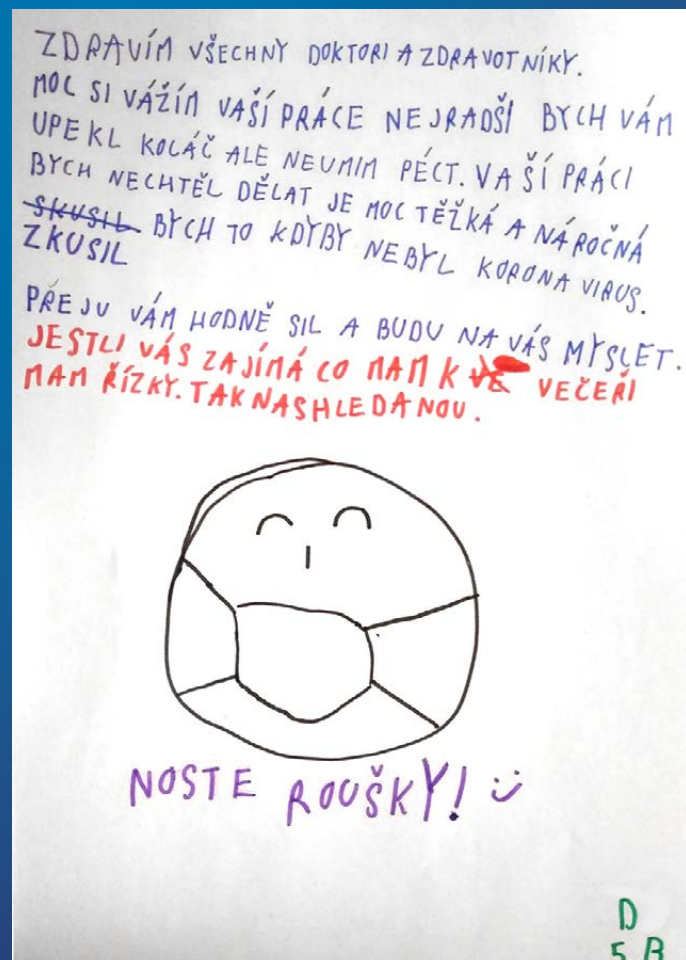 ZDRAVÍM VŠECHNY DOKTORI A ZDRAVOTNÍKY.
MOC SI VÁŽÍM VAŠÍ PRÁCE NEJRADŠÍ BYCH VÁM
UPEKL KOLÁČ ALE NEUMIM PÉCT. VAŠÍ PRÁCI
BYCH NECHTĚL DĚLAT JE MOC TĚŽKÁ A NÁROČNÁ
SKUSIL BYCH TO KDYBY NEBYL KORONA VIRUS.
ZKUSIL
PŘEJU VÁM HODNĚ SIL A BUDU NA VÁS MYSLET.
JESTLI VÁS ZAJÍMÁ CO MAM K VE VEČEŘI
MAM ŘÍZKY. TAK NASHLEDANOU.
NOSTE ROUŠKY! :)
D
5.B